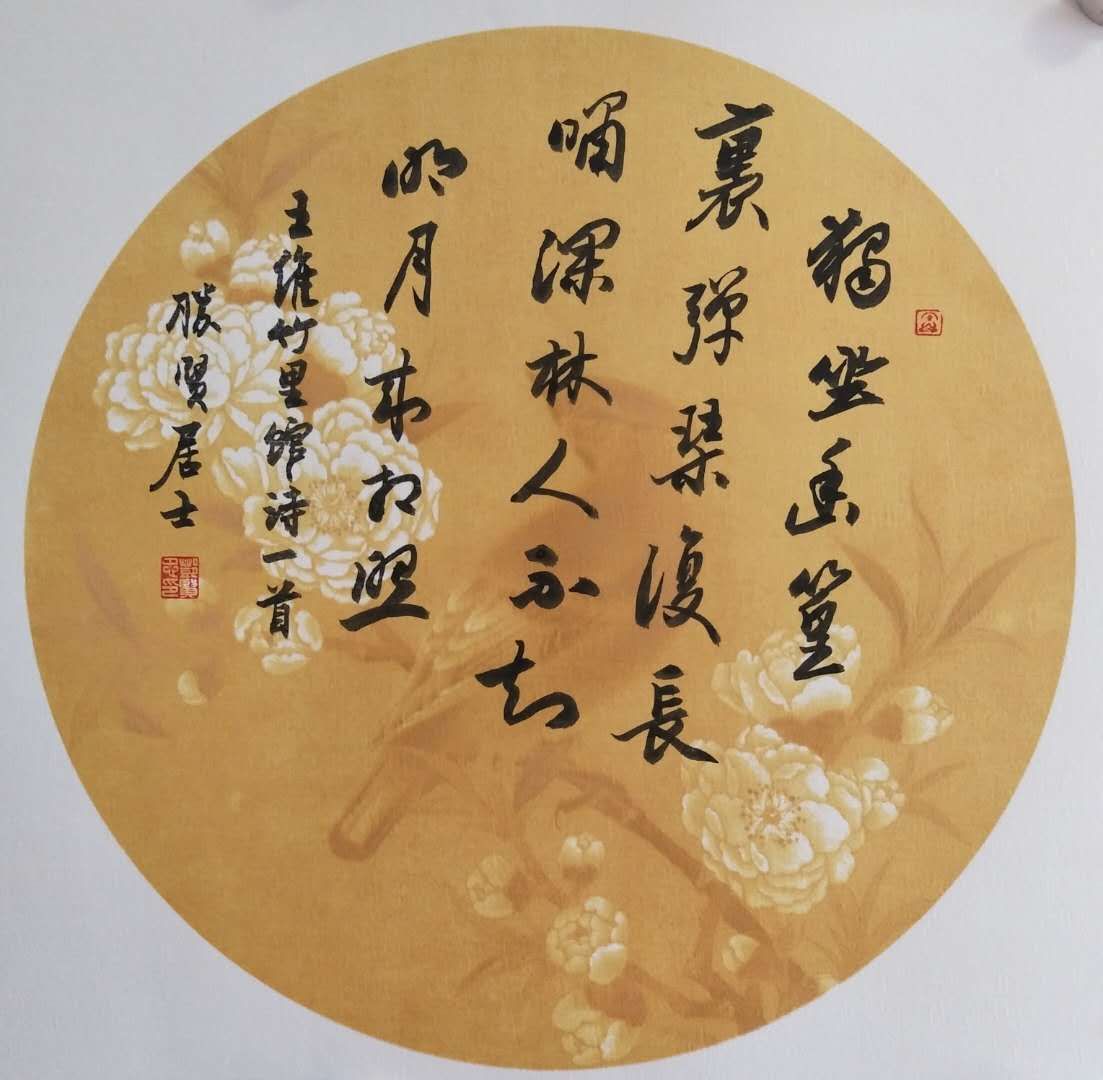 獨坐幽篁
裏彈琴復長
嘯深林人不知
明月來相照
王維竹里館詩一首
勝賢居士